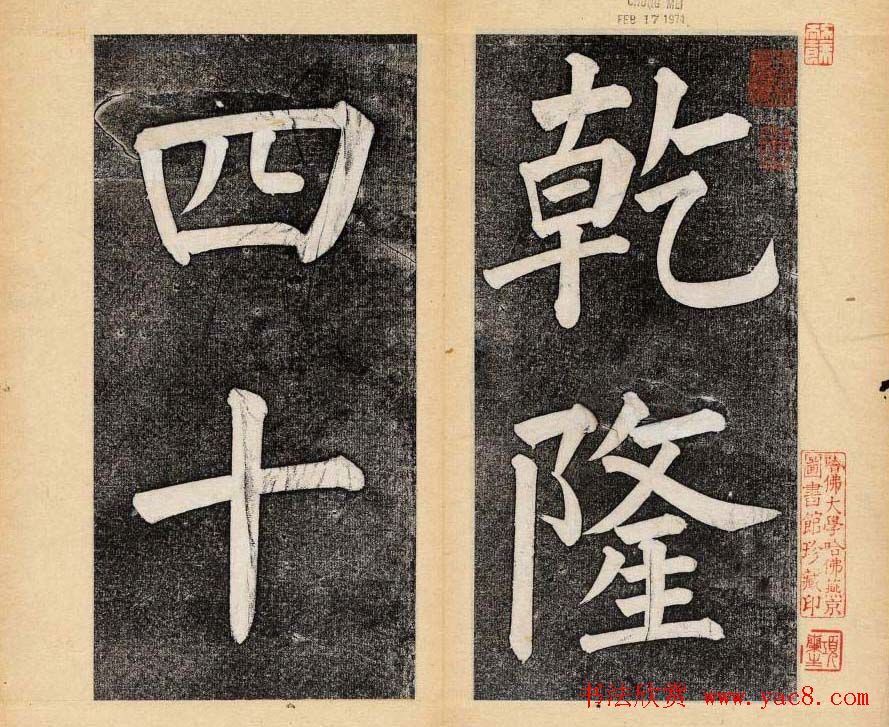 乾隆
四十
CHUNG MEI
FEB 17 1971
哈佛大學哈佛燕京
圖書館珍藏印
书法欣赏 www.yac8.com